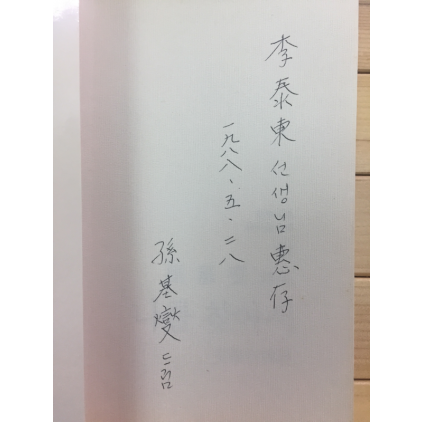 李泰東 선생님 惠存
一九八八.五.二八
孫基燮 드림